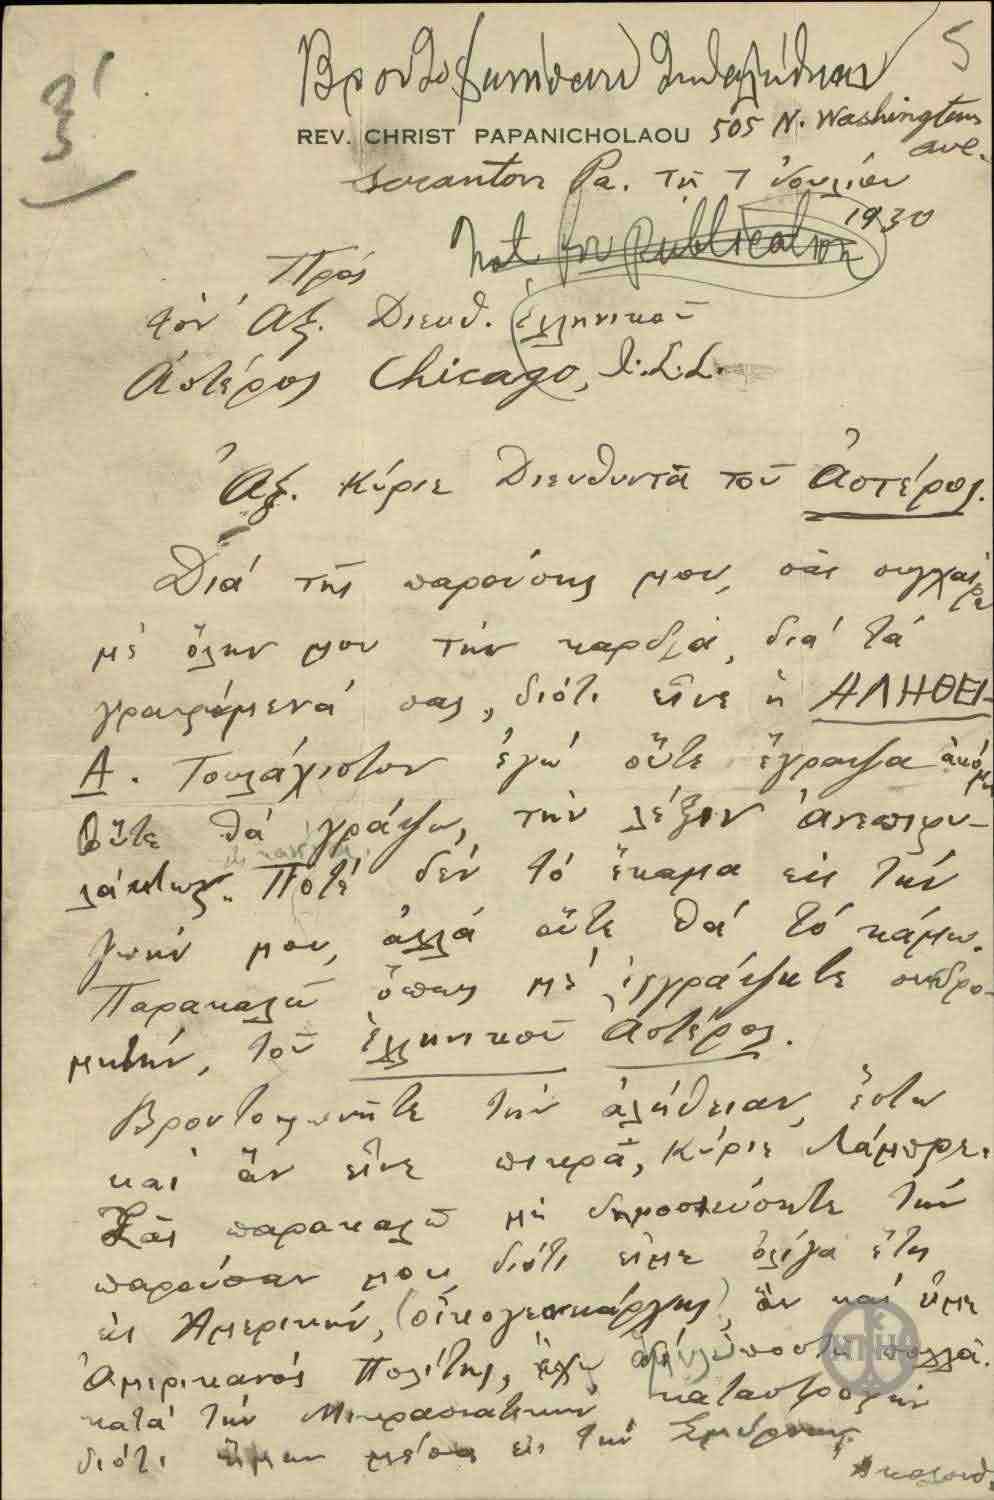 ξ'
5
REV. CHRIST PAPANICHOLAOU 505 N. Washington
ave.
Scranton Pa. τῇ 7 Ἰουλίου
1930
Not for publication
Πρὸς
τὸν Ἀξ. Διευθ. Ἑλληνικοῦ
Ἀστέρος Chicago, I.L.L.
Ἀξ. Κύριε Διευθυντὰ τοῦ Ἀστέρος.
Διὰ τῆς παρούσης μου, σᾶς συγχαίρω
μὲ ὅλην μου τὴν καρδιὰ, διὰ τὰ
γραφόμενά σας, διότι εἶνε ἡ ΑΛΗΘΕΙ-
Α. Τουλάχιστον ἐγὼ οὔτε ἔγραψα ἀκόμη
οὔτε θὰ γράψω, τὴν λέξιν ἀνεπιφυ-
λάκτως. Ποτὲ δὲν τὸ ἔκαμα εἰς τὴν
ζωήν μου, ἀλλὰ οὔτε θὰ τὸ κάμω.
Παρακαλῶ ὅπως μὲ ἐγγράψητε συνδρο-
μητὴν, τοῦ Ἑλληνικοῦ Ἀστέρος.
Βροντοφωνῆτε τὴν ἀλήθειαν, ἔστω
καὶ ἂν εἶνε πικρὰ, Κύριε Λάμπρε.
Σᾶς παρακαλῶ μὴ δημοσιεύσητε τὴν
παροῦσαν μου διότι εἶμε ὀλίγα ἔτη
εἰς Ἀμερικὴν, (οἰκογενειάρχης), ἂν καὶ εἶμε
Ἀμερικανὸς Πολίτης, ἔχω πολλὰ.
κατὰ τὴν Μικρασιατικὴν καταστροφὴν
διότι ἤμην μέσα εἰς τὴν Σμύρνην.